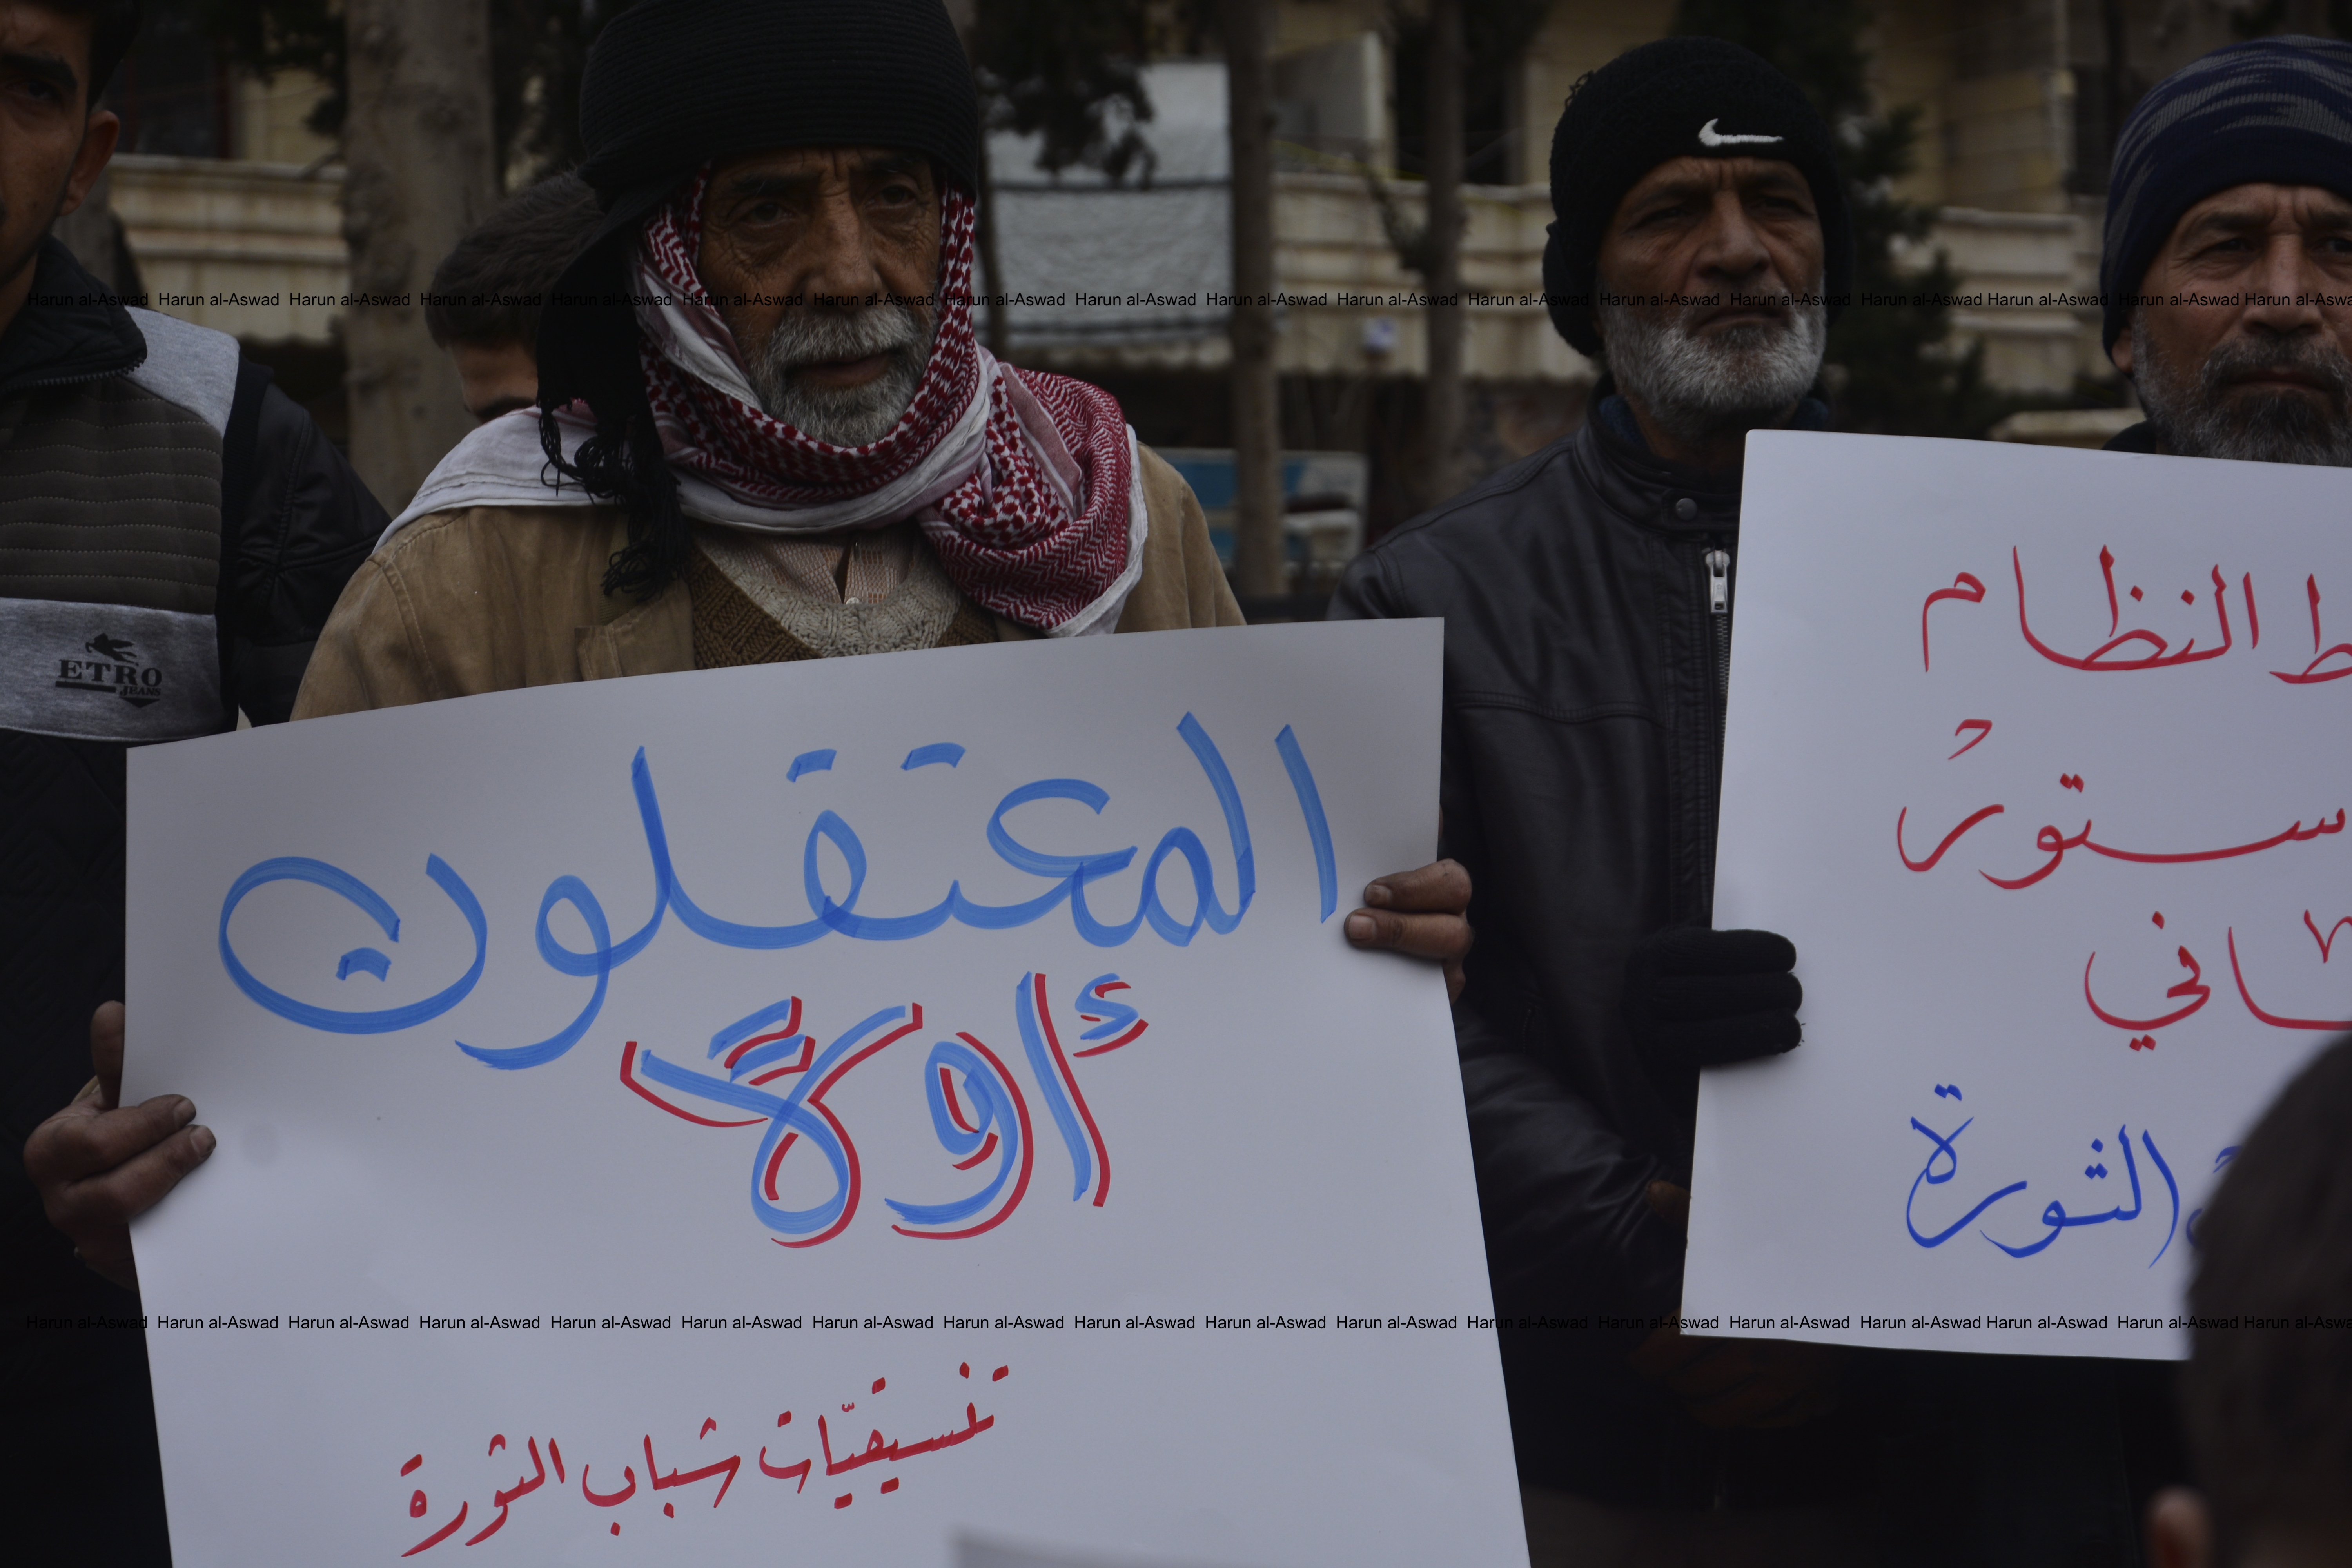 المعتقلون
أولاً
تنسيقيّات شباب الثورة
النظام
ستور
الثورة
ETRO
JEANS
Harun al-Aswad Harun al-Aswad Harun al-Aswad Harun al-Aswad Harun al-Aswad Harun al-Aswad Harun al-Aswad Harun al-Aswad Harun al-Aswad Harun al-Aswad Harun al-Aswad Harun al-Aswad Harun al-Aswad Harun al-Aswad Harun al-Aswad Harun al-Aswad Harun al-Aswad Harun al-Aswa
Harun al-Aswad Harun al-Aswad Harun al-Aswad Harun al-Aswad Harun al-Aswad Harun al-Aswad Harun al-Aswad Harun al-Aswad Harun al-Aswad Harun al-Aswad Harun al-Aswad Harun al-Aswad Harun al-Aswad Harun al-Aswad Harun al-Aswad Harun al-Aswad Harun al-Aswad Harun al-Aswa